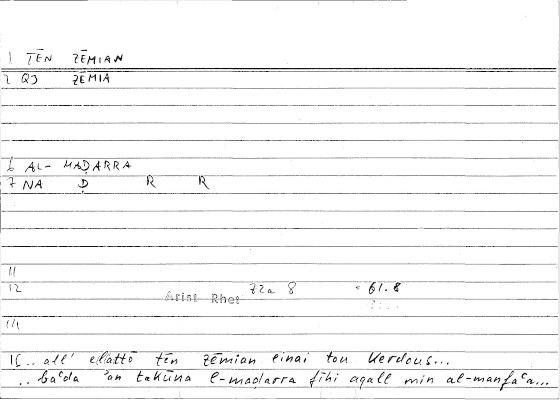 1 TĒN ZĒMIAN
2 QJ ZĒMIA
6 AL- MAḌARRA
7 NA Ḍ R R
11
12 Arist Rhet 72a 8 = 61.8
14
15 .. all' elattō tēn zēmian einai tou kerdous...
.. baʿda ʾan takūna l-maḍarra fīhi aqall min al-manfaʿa...